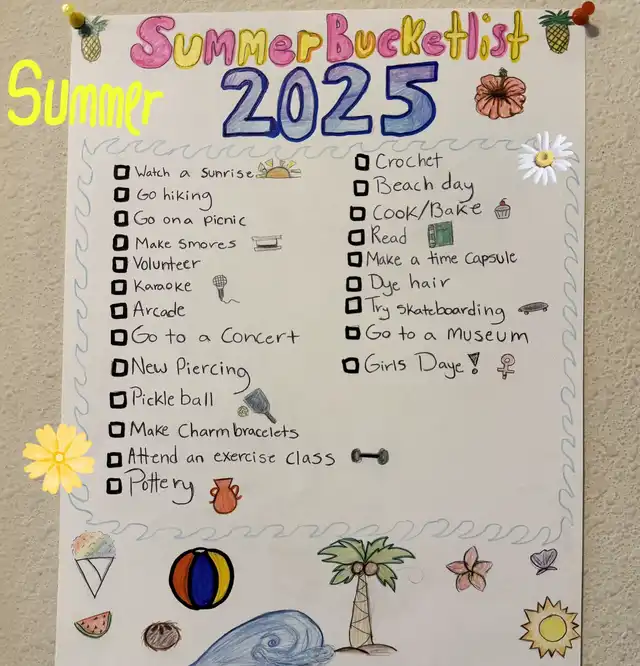 Summer Bucketlist
2025
Summer
Watch a sunrise
Go hiking
Go on a picnic
Make smores
Volunteer
Karaoke
Arcade
Go to a Concert
New Piercing
Pickleball
Make Charmbracelets
Attend an exercise class
Pottery
Crochet
Beach day
Cook/Bake
Read
Make a time capsule
Dye hair
Try skateboarding
Go to a Museum
Girls Daye!